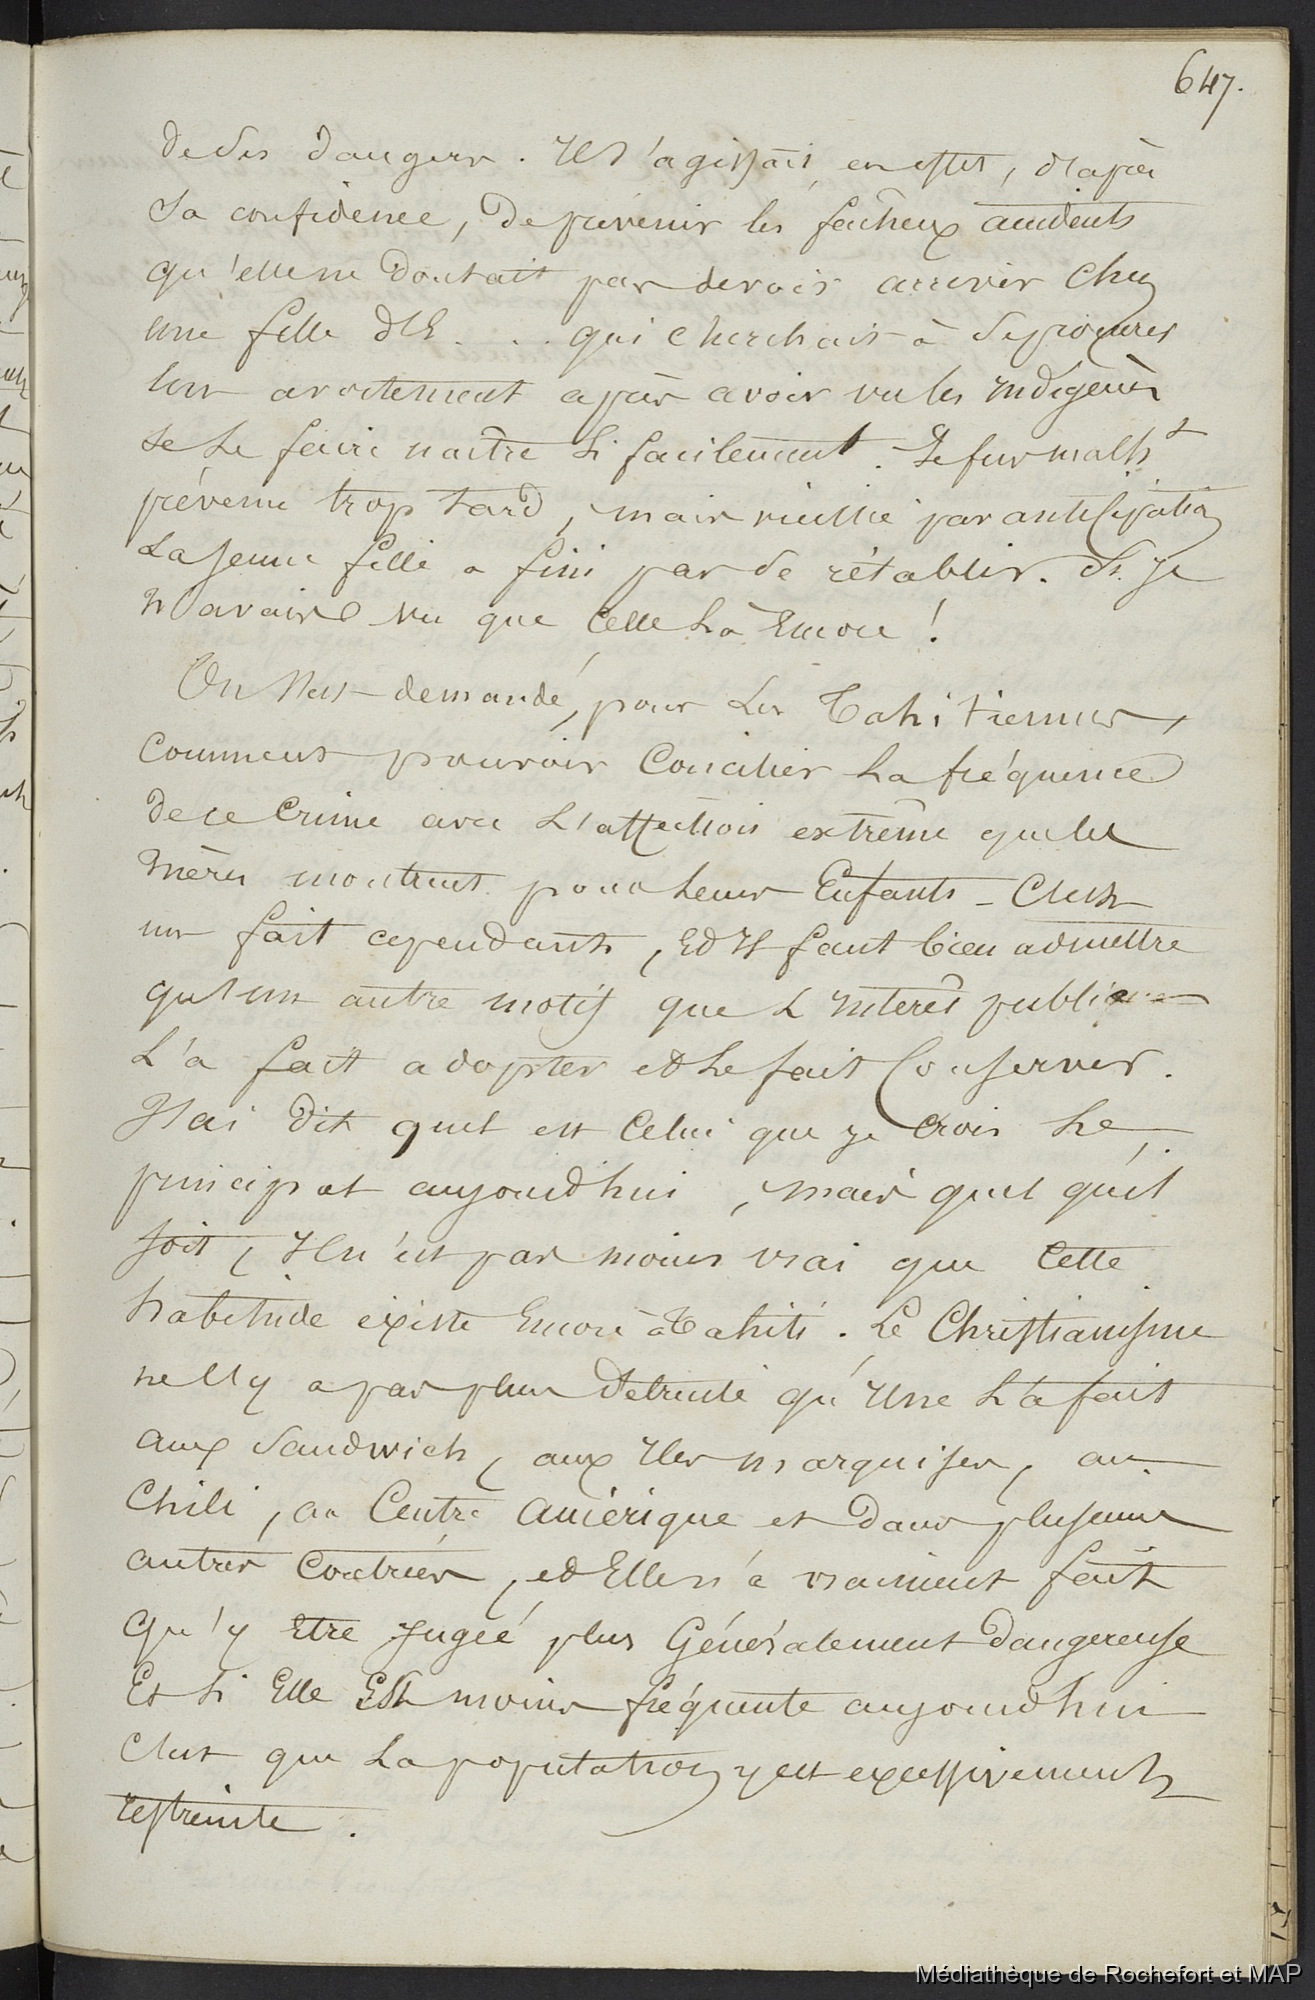 647.
de ses dangers. Il s'agissait, en effet, d'après
sa confidence, de prévenir les fâcheux accidents
qu'elle ne doutait pas devoir arriver chez
une fille d'E... qui cherchait à se procurer
un avortement après avoir vu les indigènes
se le faire naître si facilement. Je fus malht
prévenu trop tard, mais vieillie par anticipation
la jeune fille a fini par se rétablir. Si je
n'avais vu que celle là encore !
On s'est demandé, pour les Tahitiennes,
comment pouvoir concilier la fréquence
de ce crime avec l'affection extrême que les
mères montrent pour leurs Enfants - C'est
un fait cependant, Et Il faut bien admettre
qu'un autre motif que l'intérêt public
l'a fait adopter et le fait conserver.
J'ai dit quel est celui que je crois le
principal aujourd'hui, mais quel qu'il
soit, Il n'est pas moins vrai que cette
habitude existe Encore à Tahiti. Le Christianisme
ne l'y a pas plus détruite qu'Il ne l'a fait
aux Sandwich, aux Iles marquises, au
Chili, au Centre Amérique et dans plusieurs
autres contrées, et Elle n'a vraiment fait
qu'y Etre jugée plus Généralement dangereuse
Et si Elle Est moins fréquente aujourd'hui
c'est que la population y est excessivement
restreinte.
Médiathèque de Rochefort et MAP